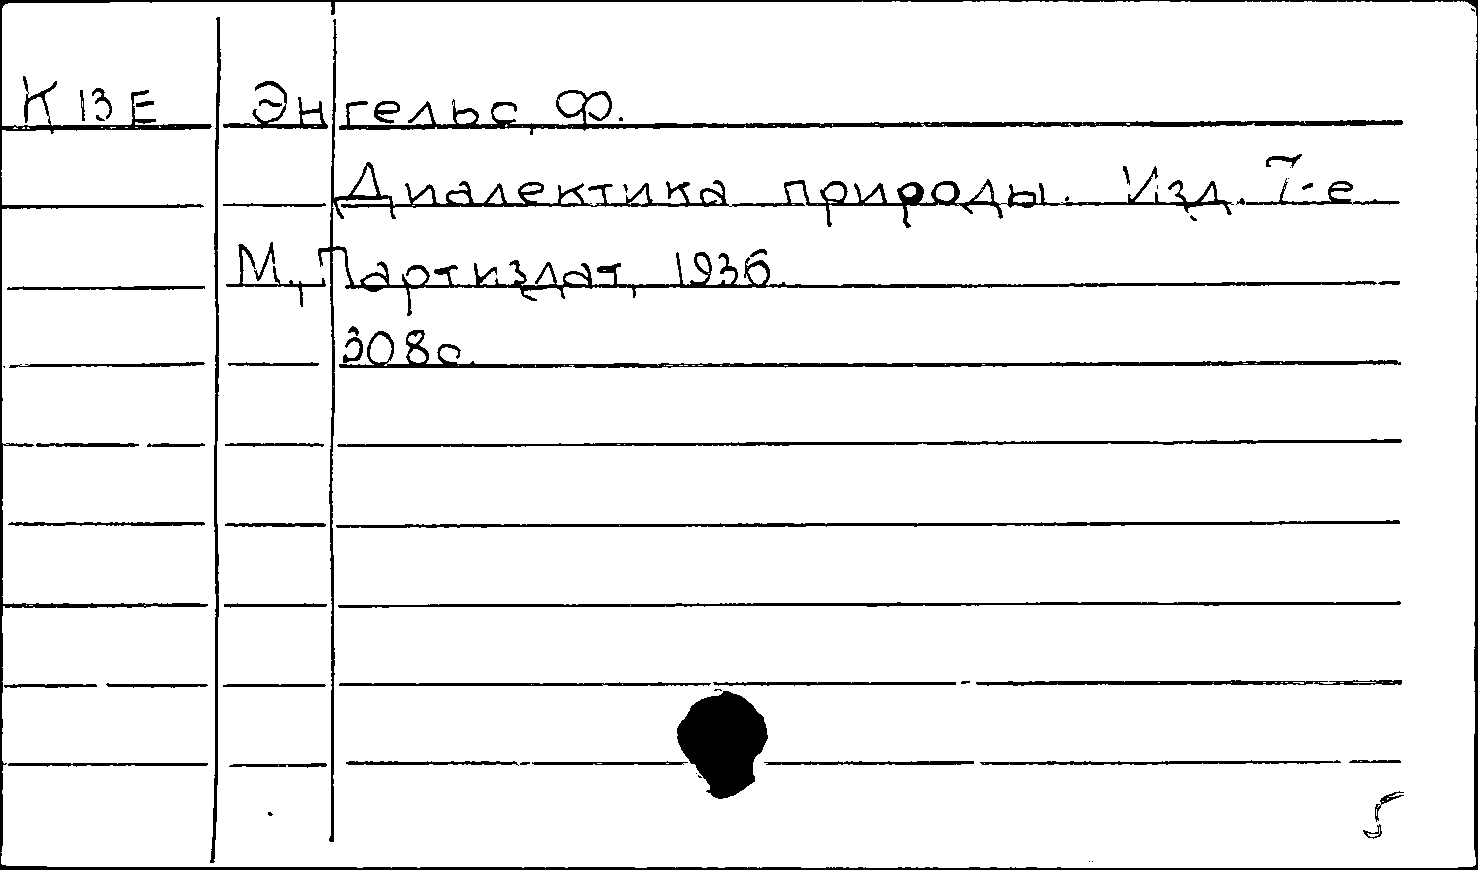 К13Е Энгельс, Ф.
Диалектика природы. Изд. 7-е.
М., Партиздат, 1936.
308с.
5